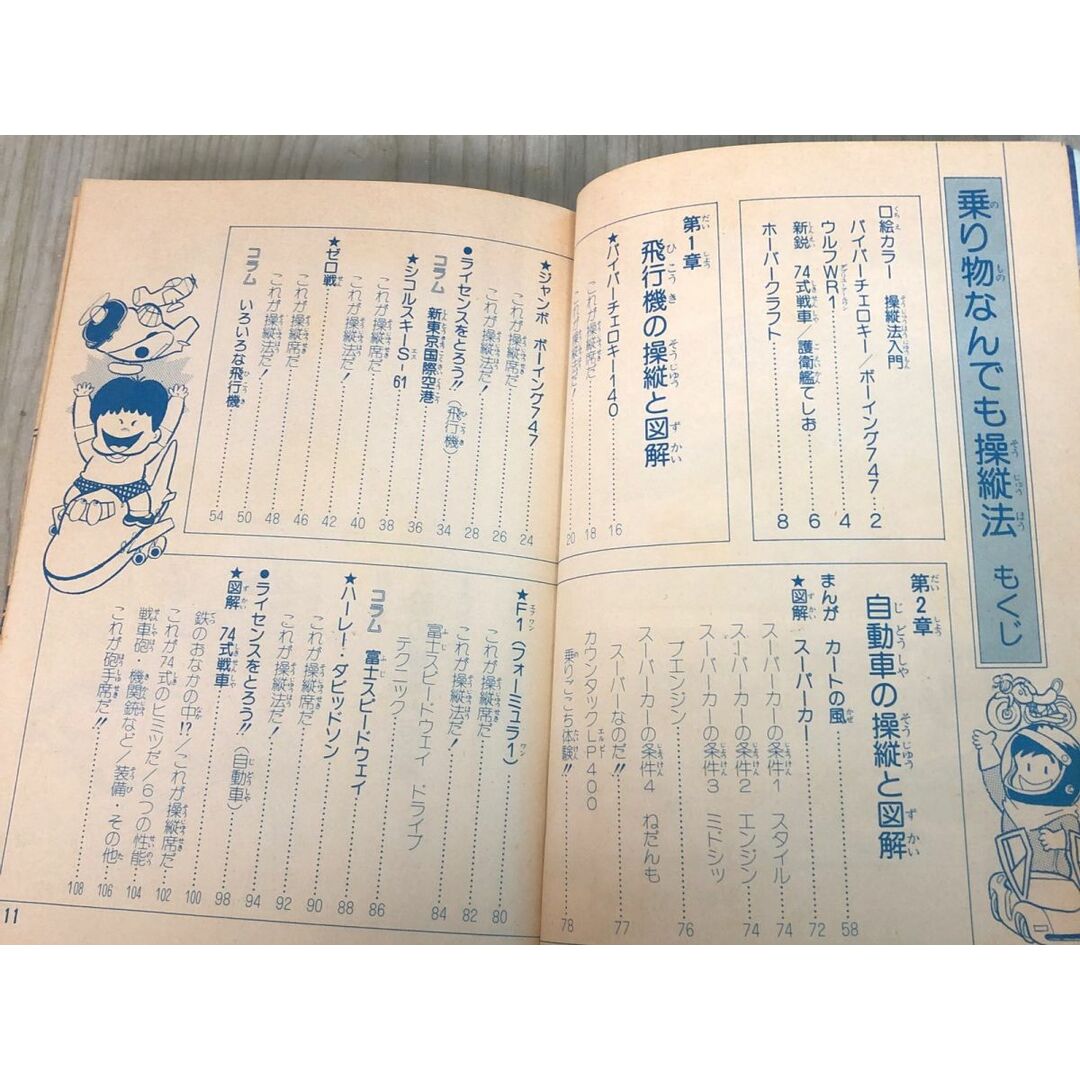 乗り物なんでも操縦法 もくじ
口絵カラー 操縦法入門
パイパーチェロキー/ボーイング747 2
ウルフWR1 4
新鋭 74式戦車/護衛艦てしお 6
ホーバークラフト 8
第1章
飛行機の操縦と図解
★パイパーチェロキー140 16
これが操縦席だ 18
これが操縦法だ! 20
★ジャンボ ボーイング747 24
これが操縦席だ 26
これが操縦法だ! 28
●ライセンスをとろう!!(飛行機) 34
コラム 新東京国際空港 36
★シコルスキーS-61 38
これが操縦席だ 40
これが操縦法だ! 42
★ゼロ戦 46
これが操縦席だ 48
これが操縦法だ! 50
コラム いろいろな飛行機 54
第2章
自動車の操縦と図解
まんが カートの風 58
★図解 スーパーカー 72
スーパーカーの条件1 スタイル 74
スーパーカーの条件2 エンジン 74
スーパーカーの条件3 ミドシッ
プエンジン 76
スーパーカーの条件4 ねだんも
スーパーなのだ!! 77
カウンタックLP400
乗りごこち体験!! 78
★F1(フォーミュラ1) 80
これが操縦席だ 82
これが操縦法だ! 84
富士スピードウェイ ドライブ
テクニック 86
コラム 富士スピードウェイ 88
★ハーレー・ダビッドソン 90
これが操縦席だ 92
これが操縦法だ! 94
●ライセンスをとろう!!(自動車) 98
★図解 74式戦車 100
鉄のおなかの中!?/これが操縦席だ 102
これが74式のヒミツだ/6つの性能 104
戦車砲・機関銃など/装備・その他 106
これが砲手席だ!! 108
11